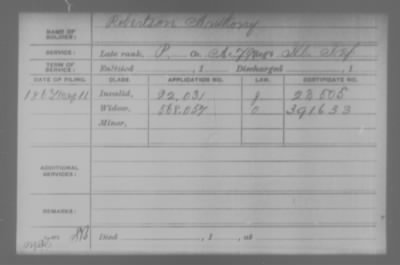 NAME OF SOLDIER: Robertson Anthony
SERVICE: Late rank, P, Co. A, 7 Ill. Inf
TERM OF SERVICE: Enlisted , 1 Discharged , 1
DATE OF FILING. CLASS. APPLICATION NO. LAW. CERTIFICATE NO.
Invalid, 22,031 22,505
Widow, 568,057 391633
Minor,
ADDITIONAL SERVICES:
REMARKS:
Died , 1 , at